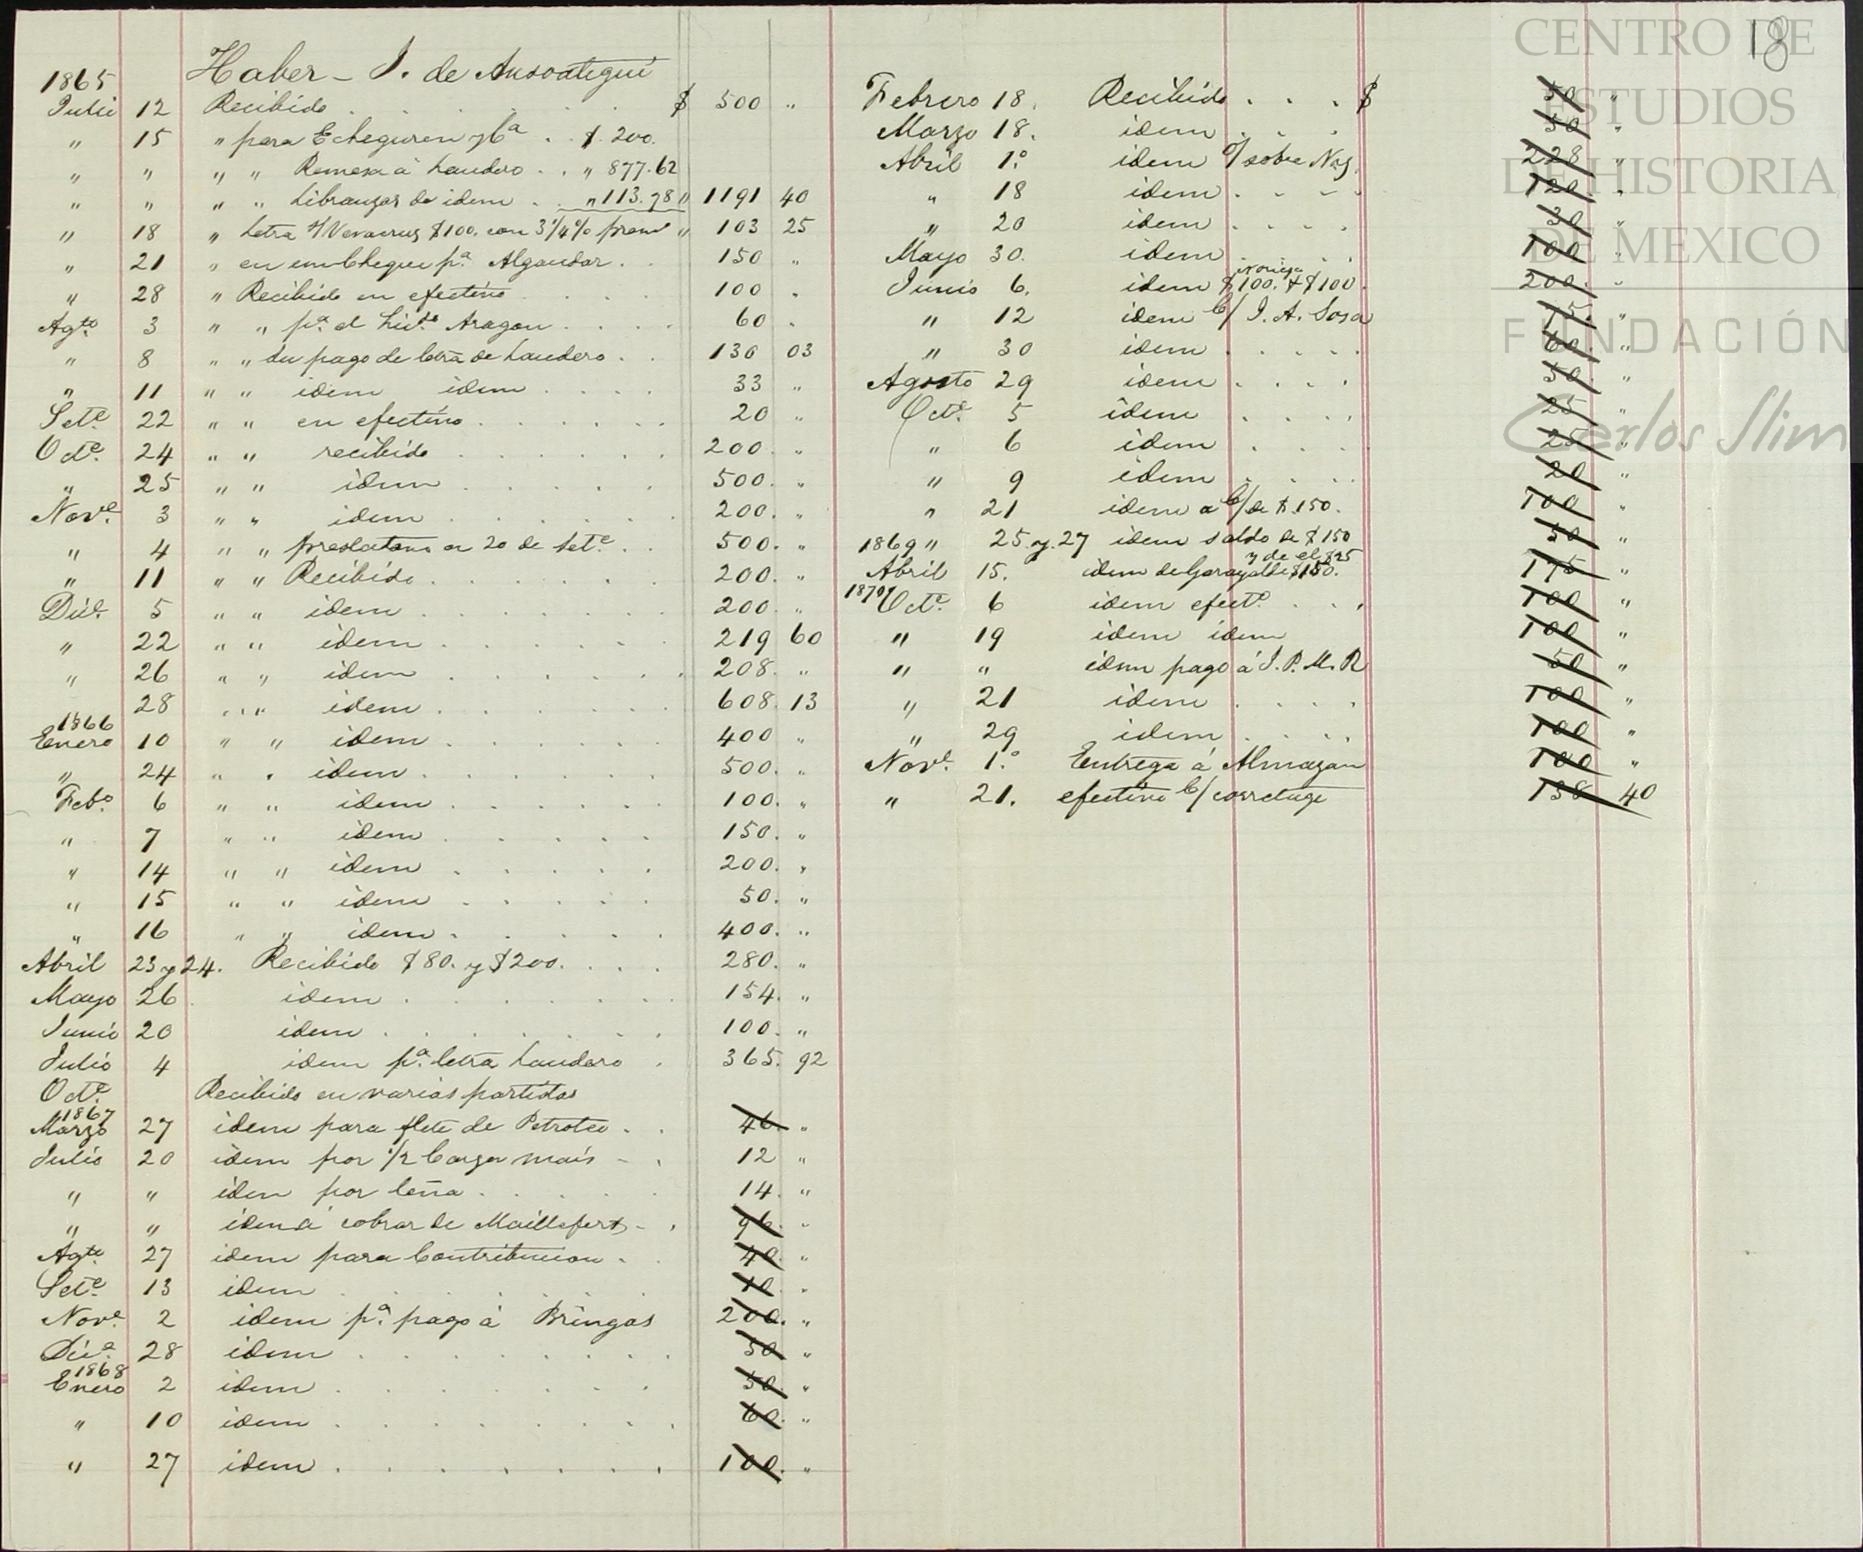 18
Haber - I. de Ansoategui
1865
Julio 12 Recibido . . . $ 500 "
" 15 " para Echeguren y Ca . . $ 200.
" " " " Remesa à Landero . . " 877.62
" " " " Libranzas de idem . . " 113.78 " 1191 40
" 18 " Letra s/ Veracruz $100. con 3 1/4 % prem " 103 25
" 21 " en un Cheque pa. Algandar . . 150 "
" 28 " Recibido en efectivo . . . 100 .
Agto. 3 " " pa. el Licdo. Aragon . . . 60 .
" 8 " " su pago de letra de Landero . . 136 03
" 11 " " idem idem . . . 33 "
Sete. 22 " " en efectivo . . . 20 "
Octe. 24 " " recibido . . . 200. "
" 25 " " idem . . . 500. "
Nove. 3 " " idem . . . 200. "
" 4 " " prestatano en 20 de Sete. . . 500. "
" 11 " " Recibido . . . 200. "
Dice. 5 " " idem . . . 200. "
" 22 " " idem . . . 219 60
" 26 " " idem . . . 208. "
28 " " idem . . . 608. 13
1866
Enero 10 " " idem . . . 400 "
" 24 " " idem . . . 500. "
Febo. 6 " " idem . . . 100. "
" 7 " " idem . . . 150. "
" 14 " " idem . . . 200. "
" 15 " " idem . . . 50. "
" 16 " " idem . . . 400. "
Abril 23 y 24. Recibido $80. y $200. . . . 280. "
Mayo 26. idem . . . 154. "
Junio 20 idem . . . 100. "
Julio 4 idem pa. letra Landero . 365. 92
Octe. Recibido en varias partidas
1867
Marzo 27 idem para flete de Petroteo . . 46. "
Julio 20 idem por 1/2 Carga mais - . 12 "
" " idem por leña . . . 14. "
" " idem à cobrar de Maillefert - . 96. "
Agto. 27 idem para Contribucion . . 40. "
Sete. 13 idem . . . 10. "
Nove. 2 idem pa. pago à Bringas 200. "
Dice. 28 idem . . . 50 "
1868
Enero 2 idem . . . 50. "
" 10 idem . . . 60. "
" 27 idem . . . 100. "
Febrero 18. Recibido . . . $ 50 "
Marzo 18. idem . . . 50 "
Abril 1.º idem o/ sobre Nog. 228 "
" 18 idem . . . 120. "
" 20 idem . . . 30 "
Mayo 30. idem . . . 100 "
Noriega
Junio 6. idem $100. y $100. 200. "
" 12 idem C/ I. A. Sosa 15. "
" 30 idem . . . 60. "
Agosto 29 idem . . . 50 "
Octe. 5 idem . . . 25 "
" 6 idem . . . 25 "
" 9 idem . . . 20 "
" 21 idem a C/ de $.150. 100 "
1869 " 25. y. 27 idem saldo de $150 50 "
y de el $25
Abril 15. idem de Garayalde $150. 175 "
1870
Octe. 6 idem efecto. . . . 100 "
" 19 idem idem 100 "
" " idem pago à I. P. M. R 50 "
" 21 idem . . . 100 "
" 29 idem . . . 100 "
Nove. 1.º Entrega à Almazan 100 "
" 21. efectivo C/ corretage 138 40
CENTRO DE
ESTUDIOS
DE HISTORIA
DE MEXICO
FUNDACIÓN
Carlos Slim